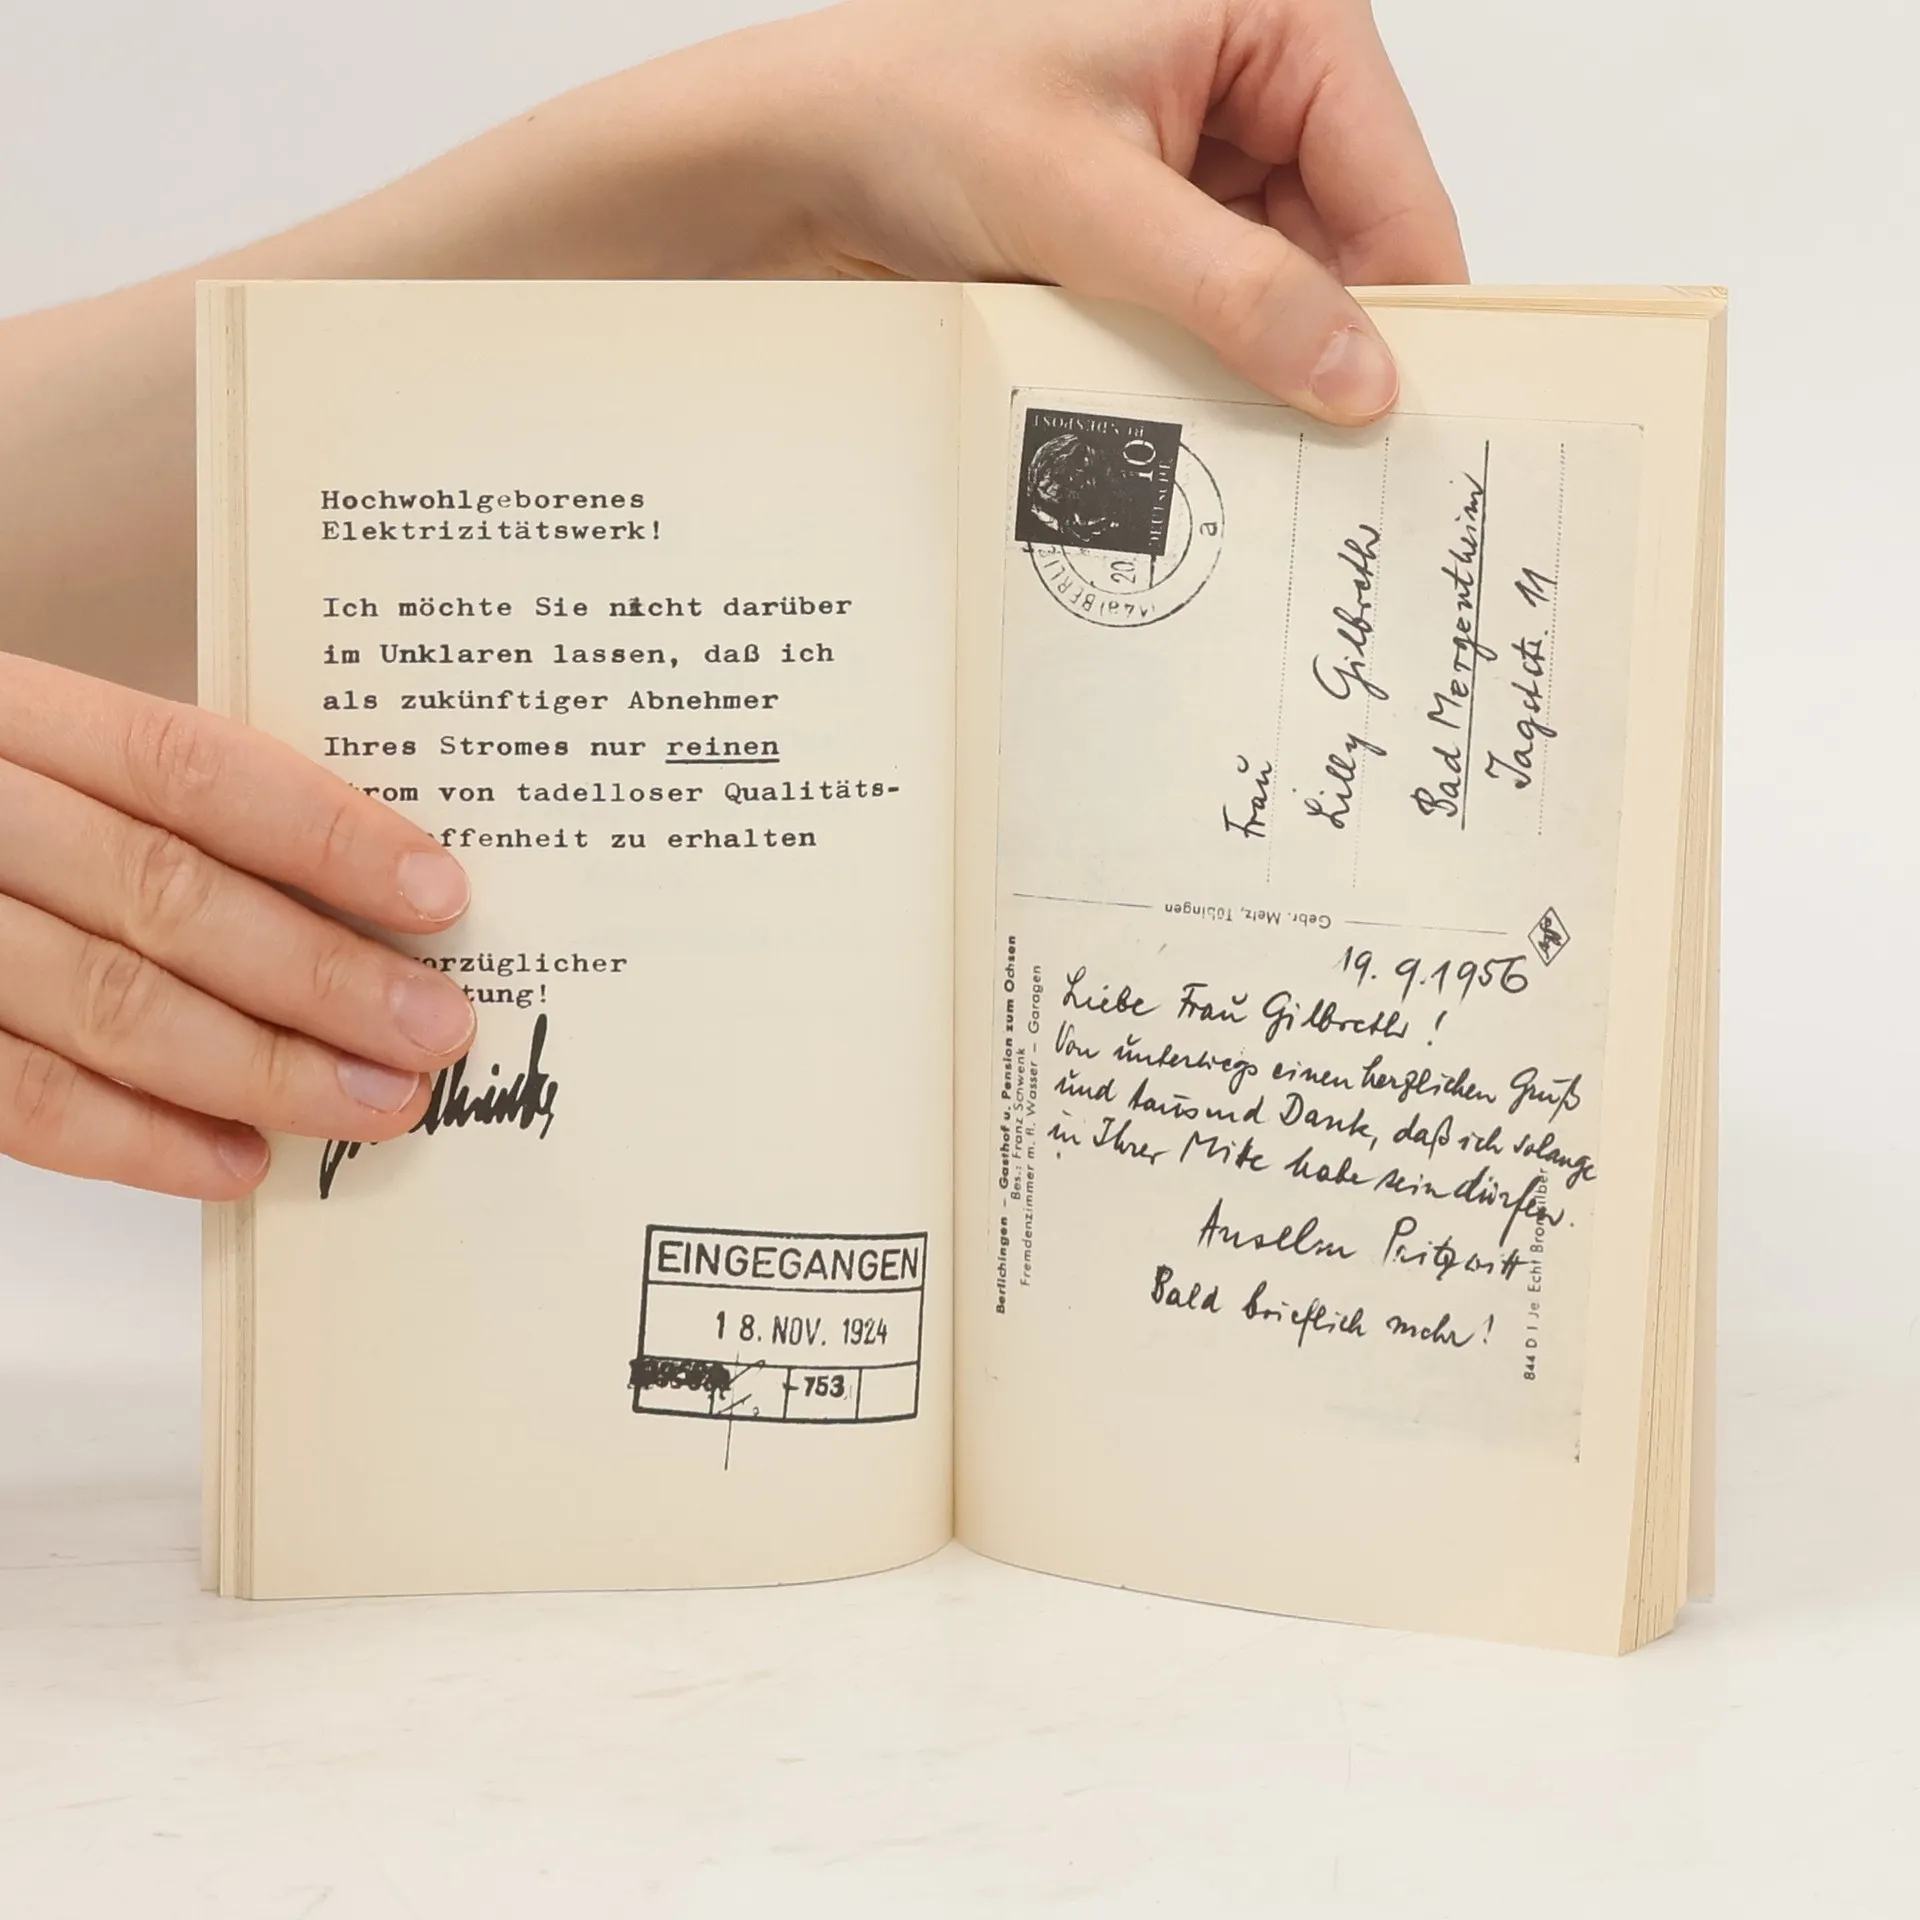 Hochwohlgeborenes
Elektrizitätswerk!
Ich möchte Sie nicht darüber
im Unklaren lassen, daß ich
als zukünftiger Abnehmer
Ihres Stromes nur reinen
rom von tadelloser Qualitäts-
ffenheit zu erhalten
orzüglicher
tung!
EINGEGANGEN
18. NOV. 1924
-753
DEUTSCHE
BUNDESPOST
10
BERLIN
20.
a
Frau
Lilly Gilbreth
Bad Mergentheim
Jagdstr. 11
Gebr. Metz, Tübingen
Agfa
Berlichingen - Gasthof u. Pension zum Ochsen
Bes.: Franz Schwenk
Fremdenzimmer m. fl. Wasser - Garagen
19. 9. 1956
Liebe Frau Gilbreth!
Von unterwegs einen herzlichen Gruß
und tausend Dank, daß ich solange
in Ihrer Mitte habe sein dürfen.
Anselm Pritzwitt
Bald brieflich mehr!
844 D I Je Echt Bromsilber